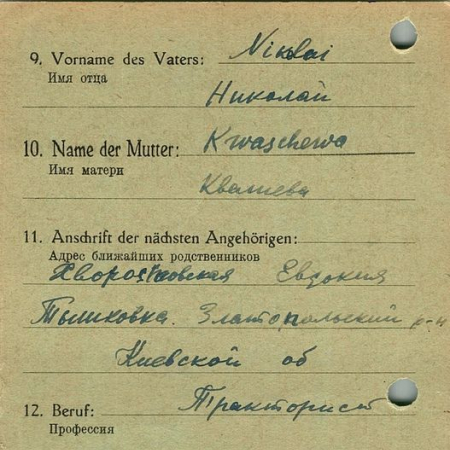 9. Vorname des Vaters: Nikolai
Имя отца
Николай
10. Name der Mutter: Kwaschewa
Имя матери
Квашева
11. Anschrift der nächsten Angehörigen:
Адрес ближайших родственников
Хворостковская Евдокия
Тышковка. Златопольский р-н
Киевской об
Тракторист
12. Beruf:
Профессия